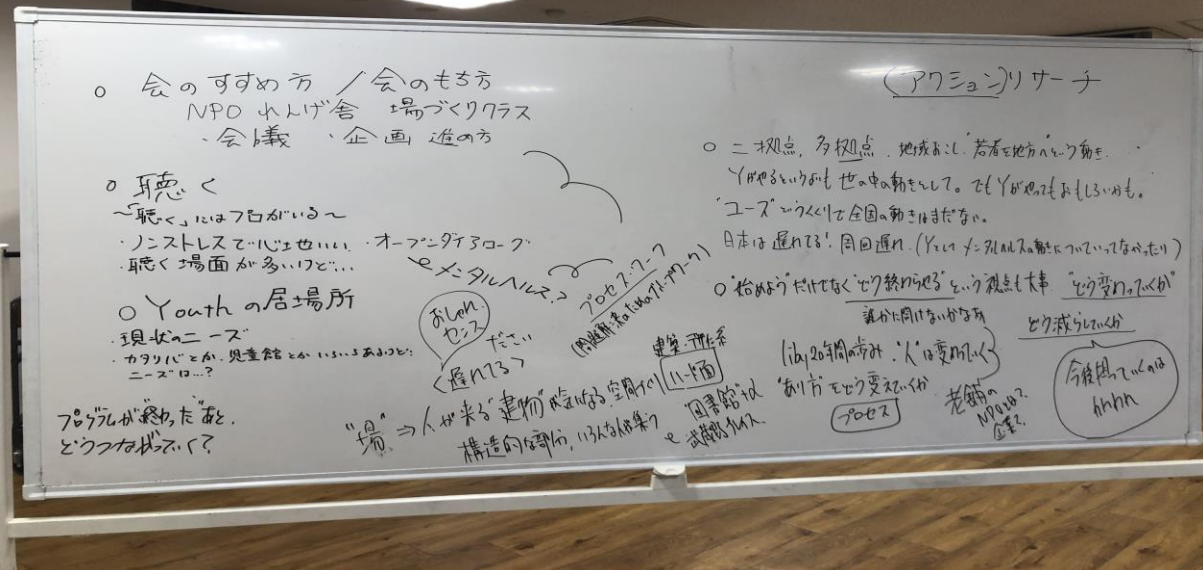 ○ 会のすすめ方 / 会のもち方
NPO れんげ舎 場づくりクラス
・会議 ・企画 進め方
○ 聴く
〜「聴く」にはプロがいる〜
・ノンストレスで心地いい ・オープンダイアローグ
・聴く場面が多いけど…
メンタルヘルス?
○ Youthの居場所
・現状のニーズ
・カタリバとか、児童館とかいろいろあるけど…
ニーズは…?
プログラムが"終わった"あと、
どうつながっていく?
おしゃれ、
センス
ださい
〈遅れてる〉
プロセス・ワーク
(問題解決のためのグループワーク)
"場" ⇒ 人が来る"建物"が気になる、空間づくり
構造的な部分、いろんな人が集う
建築
ハード面
"図書館"+α
武蔵野プレイス
(アクション)リサーチ
○ 二拠点、多拠点、地域おこし、"若者を地方へ"という動き…
Yがやるというよりも世の中の動きとして。でもYがやってもおもしろいかも。
"ユース"というくくりで全国の動きはまだない。
日本は遅れてる! 周回遅れ (Yとして メンタルヘルスの動きについていってなかったり)
○ "始めよう"だけでなく"どう終わらせる"という視点も大事 "どう変わっていくか"
誰かに聞けないかなぁ
どう減らしていくか
liby20年間の歩み、"人"は変わっていく
"あり方"をどう変えていくか
プロセス
老舗の
NPOとは?
企業?
今後困っていくのは
hnhn